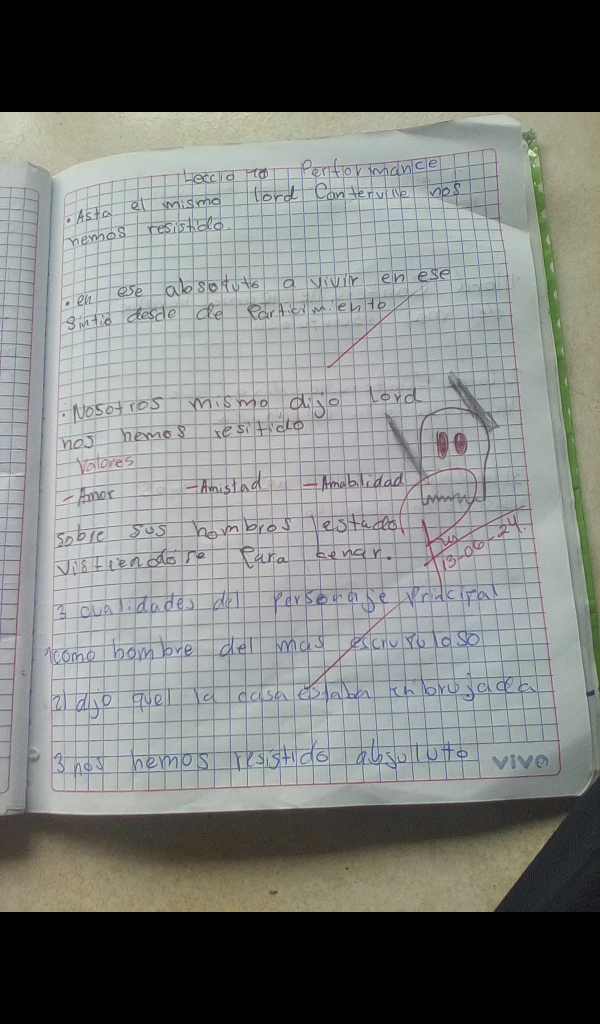 Leccio 10 Performance
. Asta el mismo lord Canterville nos
hemos resistido.
. en ese absoduto a vivir en ese
Sintio desde de Particimiento
. Nosotros mismo dijo lord
nos hemos resitido
Valores
- Amor - Amistad - Amabilidad
sobre sus hombros estado
vistiendose Para cenar.
13-06-24.
3 cualidades del Personaje Principal
1 como hombre del mas escruruloso
2) dijo quel la casa estaba enbrujada
3 nos hemos resistido absoluto
vivo